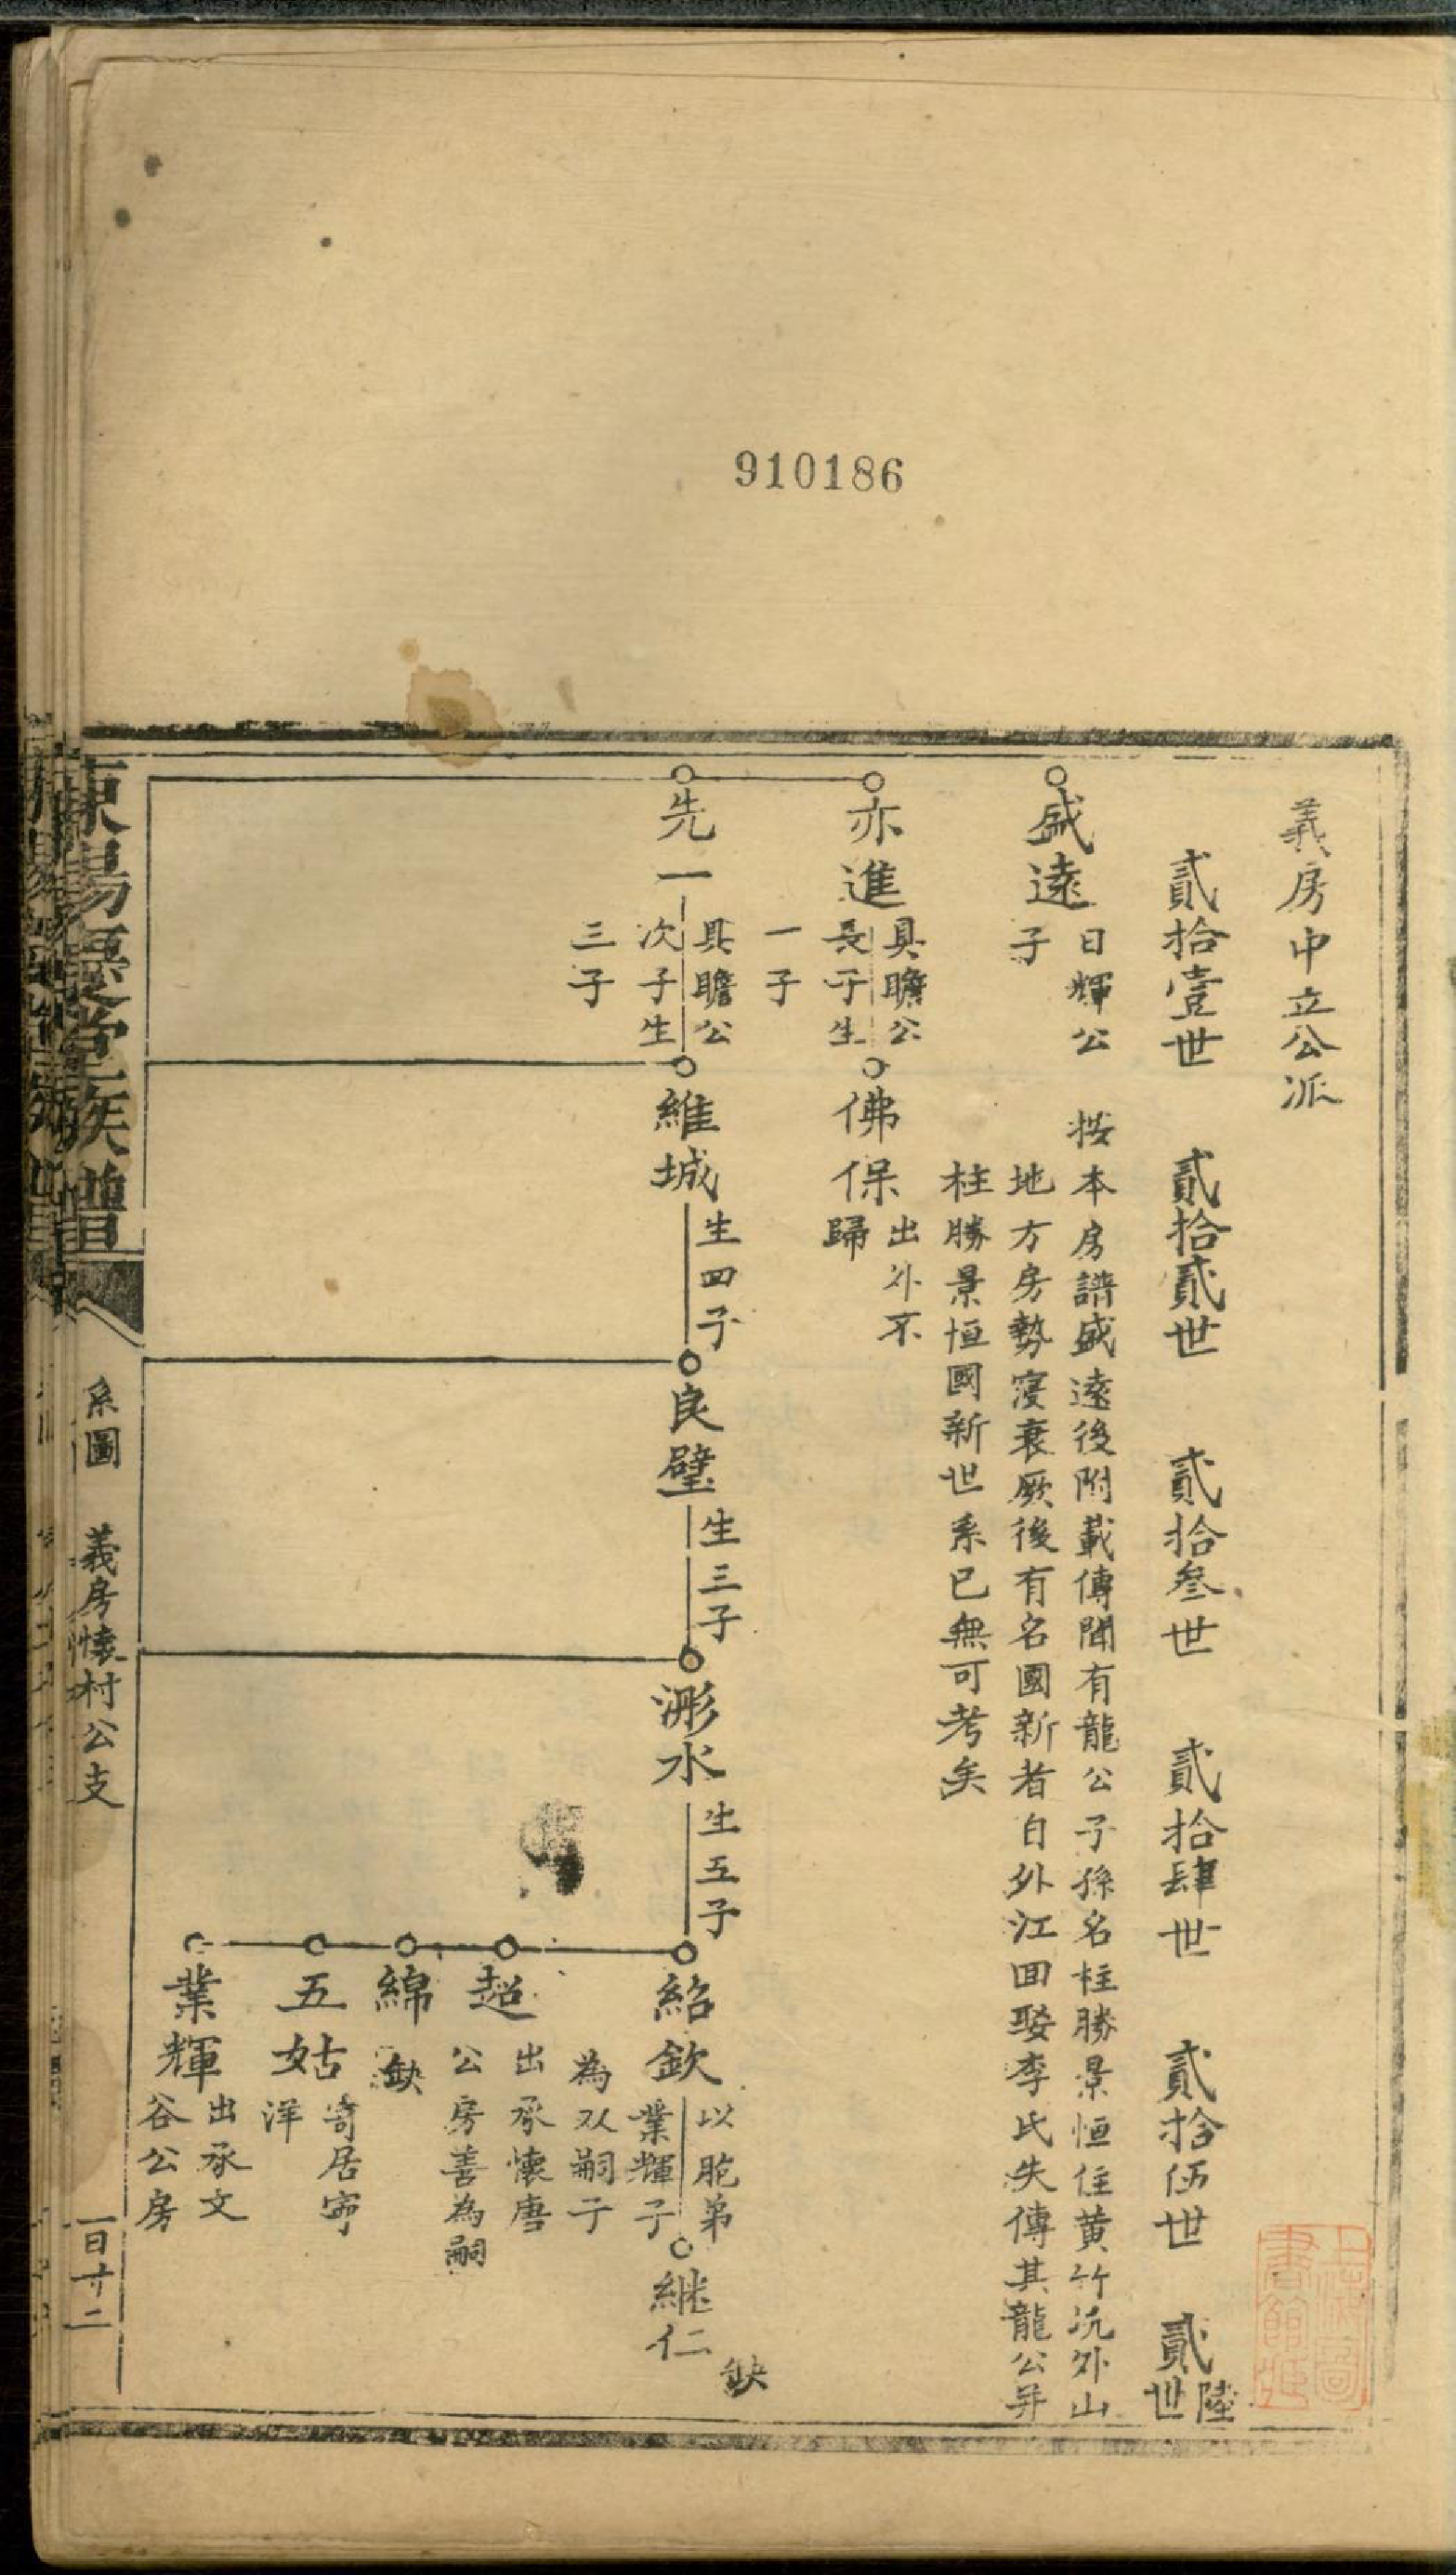 910186
義房中立公派
貳拾壹世 貳拾貳世 貳拾叁世 貳拾肆世 貳拾伍世 貳陸世
盛遠
日輝公
子
按本房譜盛遠後附載傳聞有龍公子孫名柱勝景恒住黄竹沆外山
地方房勢寖衰厥後有名國新者自外江回娶李氏失傳其龍公并
柱勝景恒國新世系已無可考矣
亦進
具瞻公
長子生
一子
佛保
出外不
歸
先一
具瞻公
次子生
三子
維城
生四子
良璧
生三子
水
生五子
紹欽
以胞弟
業輝子
為双嗣子
継仁
缺
超
出承懐唐
公房善為嗣
綿
缺
五姑
寄居寧
洋
業輝
出承文
谷公房
族譜
系圖 義房懐村公支
一百十二